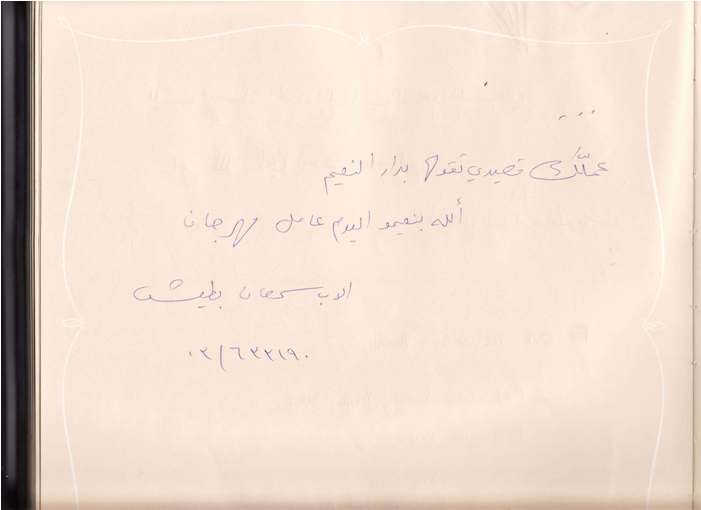 ...
عملّك قصيدي تقولا بدار النعيم
ألله بنعيمو اليوم عامل مهرجان
الاب سمعان بطيش
٠٣/٦٣٣١٩٠